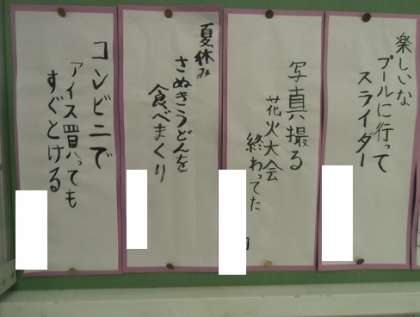 楽しいな
プールに行って
スライダー
写真撮る
花火大会
終わってた
夏休み
さぬきうどんを
食べまくり
コンビニで
アイス買っても
すぐとける